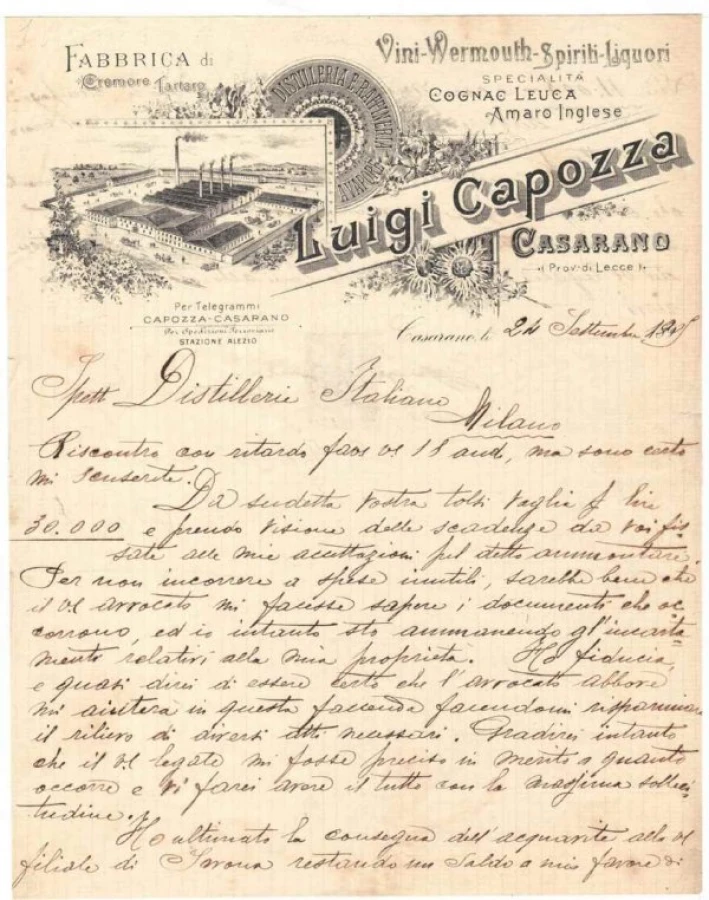 FABBRICA di
Cremore Tartaro
Vini-Wermouth-Spiriti-Liquori
SPECIALITÀ
COGNAC LEUCA
Amaro Inglese
DISTILLERIA E RAFFINERIA
A VAPORE
LUIGI CAPOZZA
CASARANO
(Prov. di Lecce)
Per Telegrammi
CAPOZZA-CASARANO
Per Spedizioni Ferroviarie
STAZIONE ALEZIO
Casarano, li 24 Settembre
Spett Distillerie Italiane
Milano
Riscontro con ritardo 18 and, ma sono certo
mi scuserete.
Da sudetta Vostra tolsi Vaglia lire
30.000 e prendo visione delle scadenze da voi fis-
sate alle mie accettazioni pel detto ammontare
Per non incorrere a spese inutili, sarebbe bene che
il Vs avvocato mi facesse sapere i documenti che oc-
corrono, ed io intanto sto ammanendo gl'incarta
mento relativi alla mia proprietà. Ho fiducia,
e quasi direi di essere certo che l'avvocato
mi aiuterà in questa facenda facendomi risparmiare
il rilievo di diversi atti necessari. Gradirei intanto
che il Vs legale mi fosse preciso in merito a quanto
occorre e vi farei avere il tutto con la massima solleci-
tudine.
Ho ultimato la consegna dell'acquavite alla Vs
filiale di Savona restando un Saldo a mio favore di